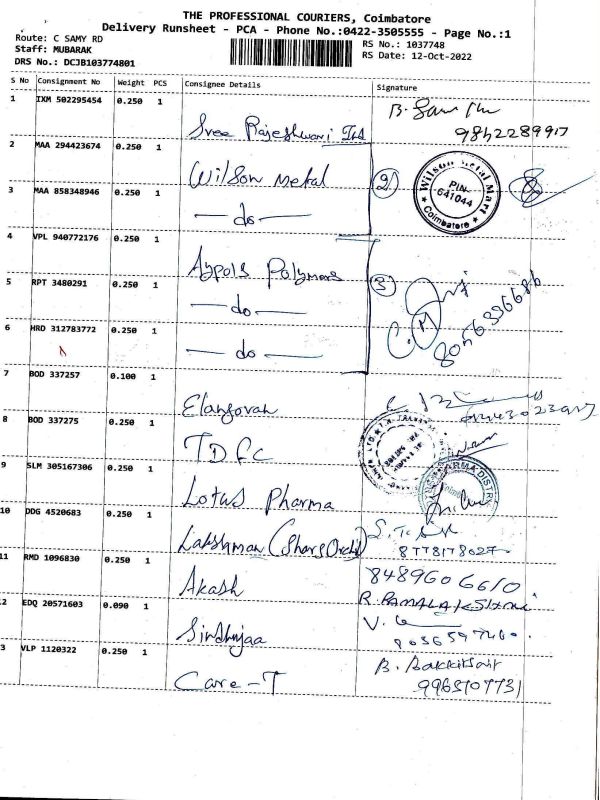 THE PROFESSIONAL COURIERS, Coimbatore
Delivery Runsheet - PCA - Phone No.:0422-3505555 - Page No.:1
Route: C SAMY RD
RS No.: 1037748
Staff: MUBARAK
RS Date: 12-Oct-2022
DRS No.: DCJB103774801
S No Consignment No Weight PCS Consignee Details Signature
1 IXM 502295454 0.250 1
Sree Rajeshwari Ind
9842289917
2 MAA 294423674 0.250 1
Wilson Metal
2
Wilson Metal Mart
PIN-
641044
Coimbatore
3 MAA 858348946 0.250 1
— do —
4 VPL 940772176 0.250 1
Polymers
5 RPT 3480291 0.250 1
— do —
3
8056336686
6 HRD 312783772 0.250 1
— do —
7 BOD 337257 0.100 1
Elangovan
8 BOD 337275 0.250 1
TDFC
9 SLM 305167306 0.250 1
Lotus Pharma
10 DDG 4520683 0.250 1
Lakshman
8778178027
11 RMD 1096830 0.250 1
Akash
8489606610
2 EDQ 20571603 0.090 1
V.
3 VLP 1120322 0.250 1
Care-T
B.